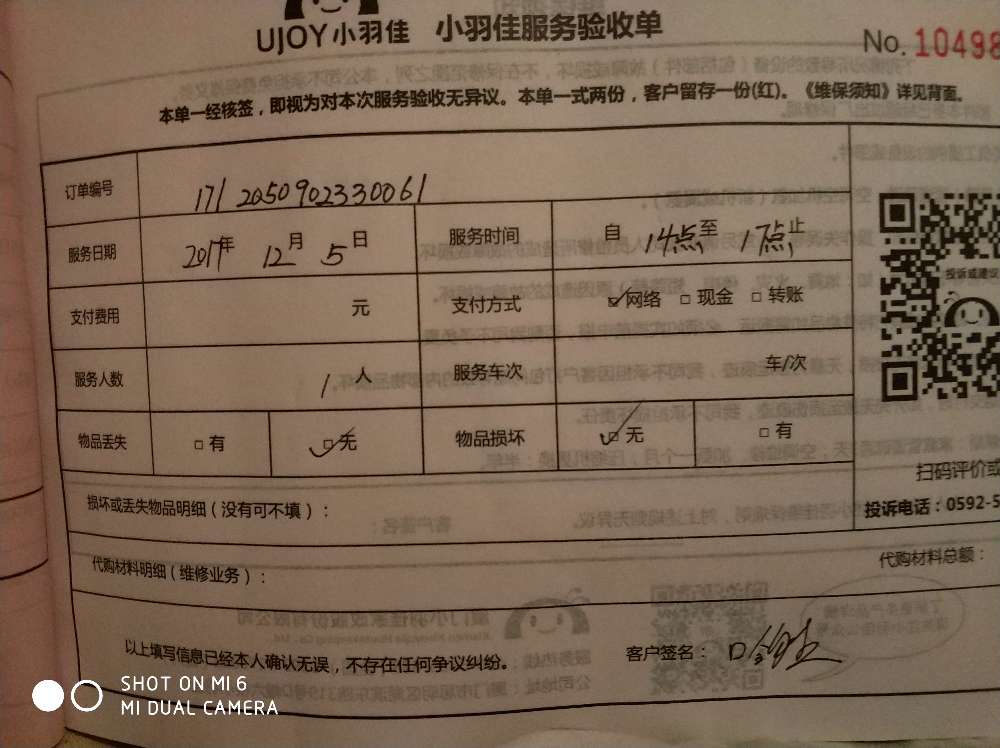 UJOY小羽佳 小羽佳服务验收单
No. 10498
本单一经核签，即视为对本次服务验收无异议。本单一式两份，客户留存一份(红)。《维保须知》详见背面。
订单编号 1712050902330061
服务日期 2017年 12月 5日 服务时间 自 14点至 17点止
支付费用 元 支付方式 网络 现金 转账
服务人数 1人 服务车次 车/次
物品丢失 有 无 物品损坏 无 有
投诉或建议
扫码评价或
投诉电话：0592-5
损坏或丢失物品明细（没有可不填）：
代购材料明细（维修业务）： 代购材料总额：
以上填写信息已经本人确认无误，不存在任何争议纠纷。 客户签名：
SHOT ON MI 6
MI DUAL CAMERA